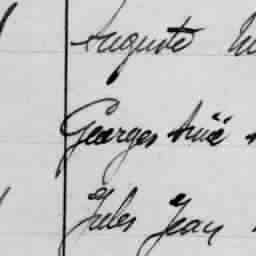 Auguste
Georges Aimé
Jules Jean